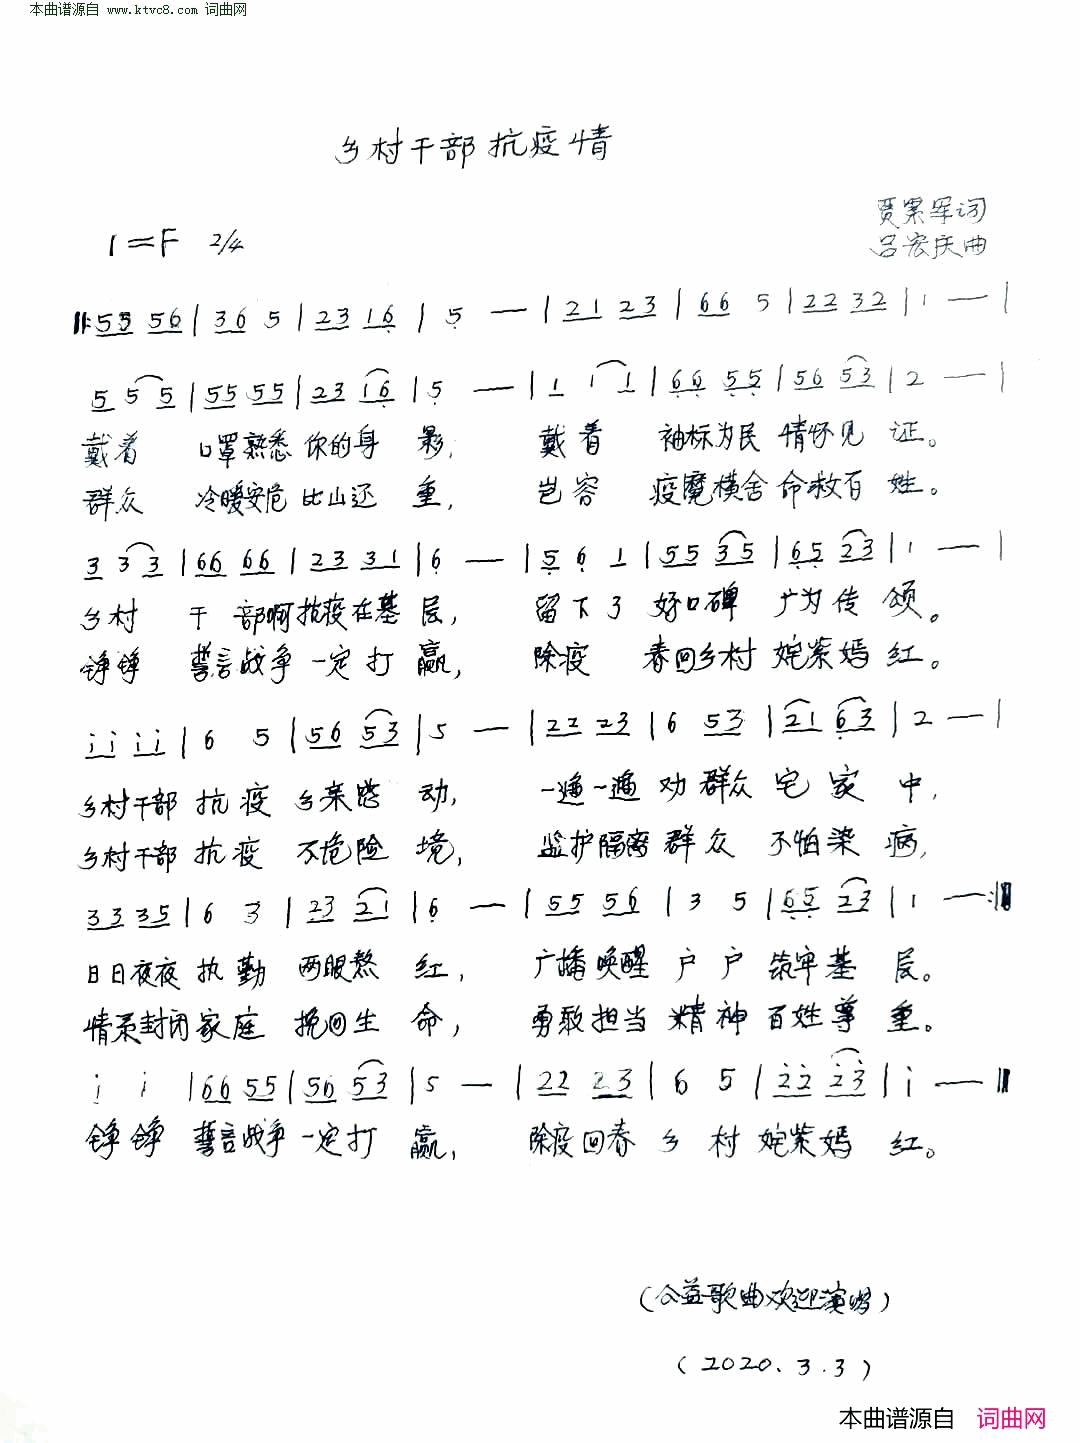 本曲谱源自 www.ktvc8.com 词曲网
乡村干部抗疫情
贾累军词
1=F 2/4
吕宏庆曲
‖:55 56|36 5|23 16|5 —|21 23|66 5|22 32|1 —|
5 5 5|55 55|23 16|5 —|1 1 1|66 55|56 53|2 —|
戴着 口罩熟悉你的身影, 戴着 袖标为民情怀见证。
群众 冷暖安危比山还重, 岂容 疫魔横舍命救百姓。
3 3 3|66 66|23 31|6 —|5 6 1|55 35|65 23|1 —|
乡村 干部啊抗疫在基层, 留下了好口碑广为传颂。
铮铮 誓言战争一定打赢, 除疫 春回乡村姹紫嫣红。
ii ii|6 5|56 53|5 —|22 23|6 53|21 63|2 —|
乡村干部抗疫乡亲感动, 一遍一遍劝群众宅家中,
乡村干部抗疫不危险境, 监护隔离群众不怕染病,
33 35|6 3|23 21|6 —|55 56|3 5|65 23|1 —:‖
日日夜夜执勤两眼熬红, 广播唤醒户户筑牢基层。
情系封闭家庭挽回生命, 勇敢担当精神百姓尊重。
i i|66 55|56 53|5 —|22 23|6 5|22 23|i —‖
铮铮誓言战争一定打赢, 除疫回春乡村姹紫嫣红。
(公益歌曲欢迎演唱)
(2020.3.3)
本曲谱源自 词曲网